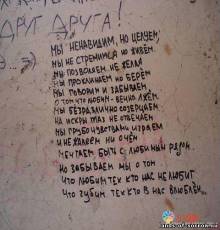 ДРУГ ДРУГА!
МЫ НЕНАВИДИМ, НО ЦЕЛУЕМ,
МЫ НЕ СТРЕМИМСЯ НО ЖИВЁМ.
МЫ ПОЗВОЛЯЕМ НЕ ЖЕЛАЯ
МЫ ПРОКЛИНАЕМ НО БЕРЁМ
МЫ ГОВОРИМ И ЗАБЫВАЕМ
О ТОМ ЧТО ЛЮБИМ - ВЕЧНО
МЫ БЕЗРАЗЛИЧНО СОЗЕРЦАЕМ
НА ИСКРЫ ГЛАЗ НЕ ОТВЕЧАЕМ
МЫ ГРУБО ЧУВСТВАМИ ИГРАЕМ
И НЕ ЖАЛЕЕМ НИ О ЧЁМ
МЕЧТАЕМ БЫТЬ С ЛЮБИМЫМ РЯДОМ
НО ЗАБЫВАЕМ МЫ О ТОМ
ЧТО ЛЮБИМ ТЕХ КТО НАС НЕ ЛЮБИТ
ЧТО ГУБИМ ТЕХ КТО В НАС ВЛЮБЛЁН...